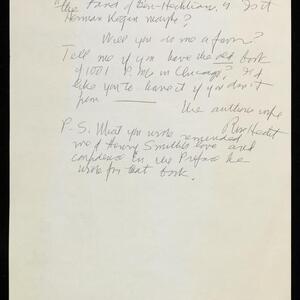 "the Land of Ben-Hechtian," is it
Herman Kogan maybe?
Will you do me a favor?
Tell me if you have the old book
of 1001 P. Ms in Chicago? I'd
like you to have it if you don't
The authors wife
Rose Hecht
P.S. What you wrote reminded
me of Henry Smith's love and
confidence in the Preface he
wrote for that book.